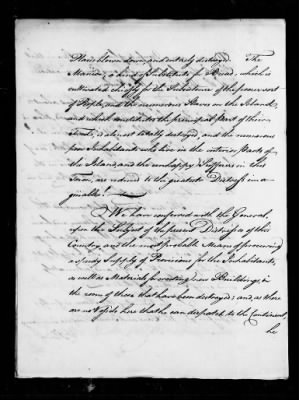 Plains blown down and entirely destroyed. The
Manioc, a kind of Substitute for Bread, which is
cultivated chiefly for the Subsistence of the poorer sort
of People, and the numerous Slaves on the Island,
and which constitutes the principal part of their
Food, is almost totally destroyed, and the numerous
poor Inhabitants who live in the interior parts of
the Island and the unhappy Sufferers in this
Town, are reduced to the greatest Distress ima-
ginable!
We have conferred with the General,
upon the Subject of the present Distress of this
Country, and the most probable Means of procuring
a speedy Supply of Provisions for the Inhabitants,
as well as Materials for erecting new Buildings, in
the room of those that have been destroyed; and, as there
are no Vessels here that he can dispatch to the Continent,
he